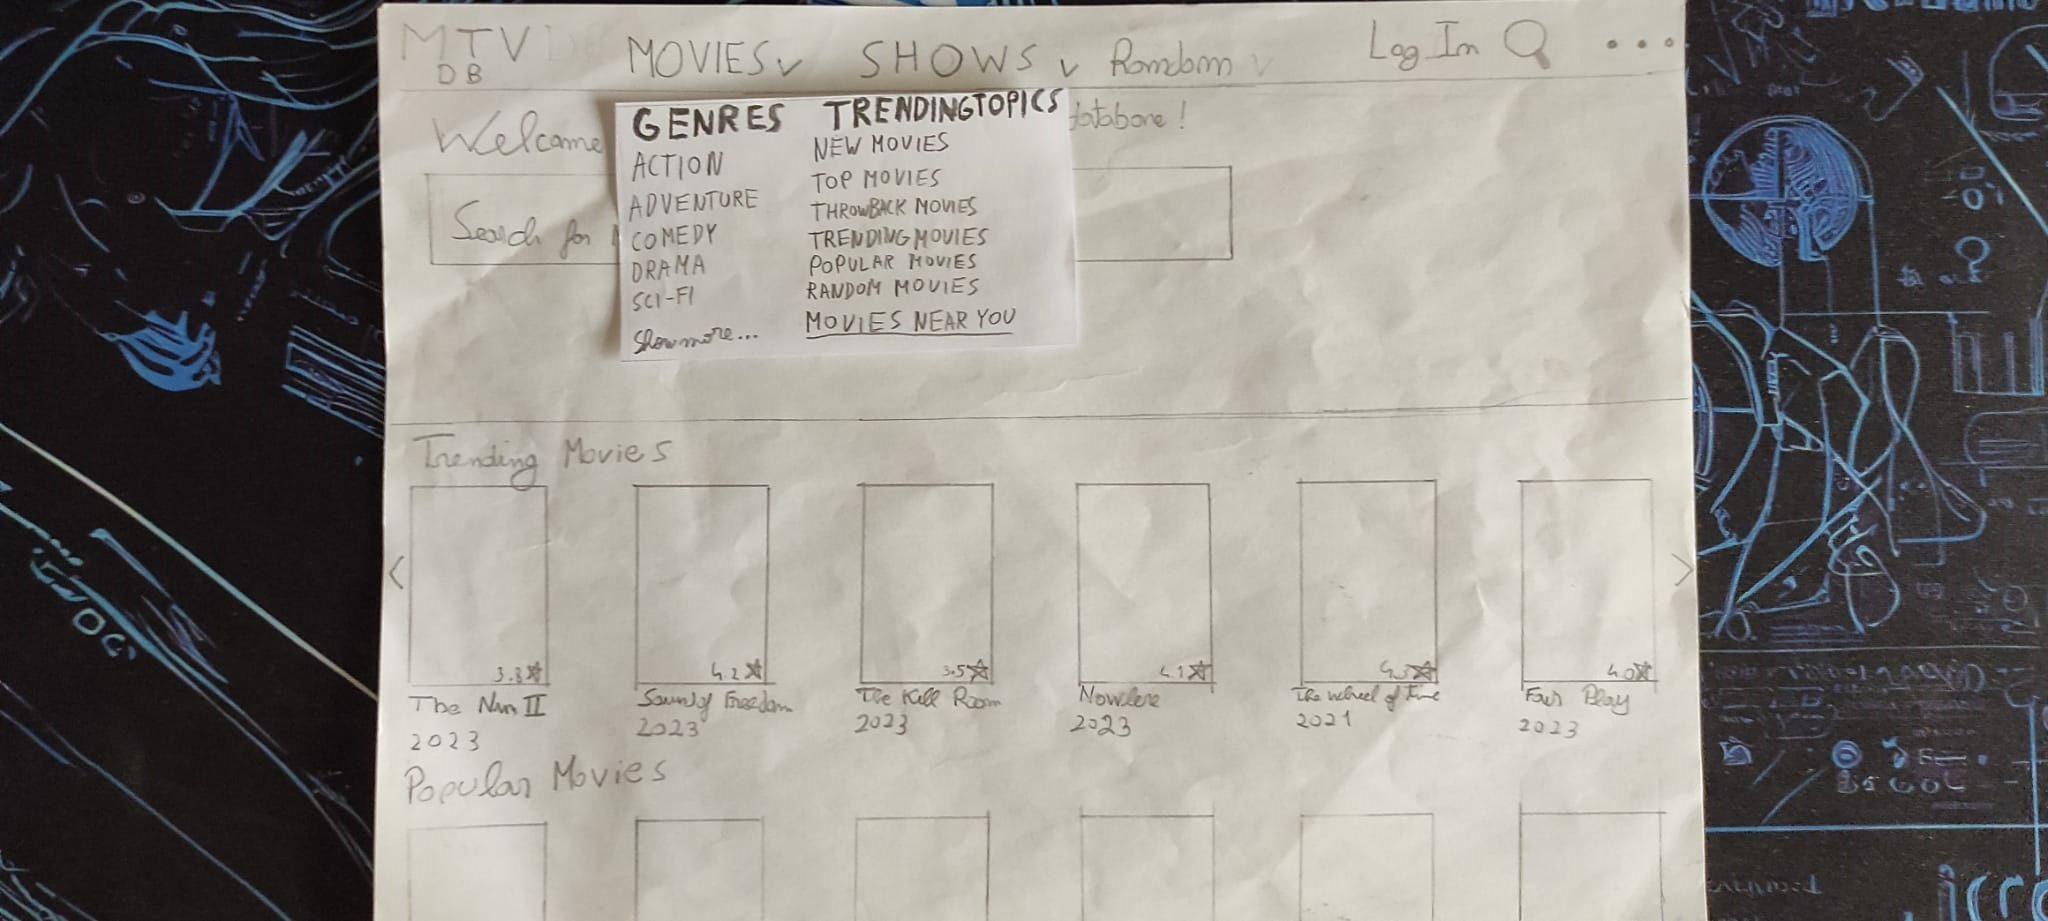 MTV
DB
MOVIES SHOWS Random Log In
Welcome database!
GENRES
ACTION
ADVENTURE
COMEDY
DRAMA
SCI-FI
Show more...
TRENDING TOPICS
NEW MOVIES
TOP MOVIES
THROWBACK MOVIES
TRENDING MOVIES
POPULAR MOVIES
RANDOM MOVIES
MOVIES NEAR YOU
Search for
Trending Movies
3.8
The Nun II
2023
4.2
Sound of Freedom
2023
3.5
The Kill Room
2023
4.1
Nowhere
2023
The wheel of time
2021
4.0
Fair Play
2023
Popular Movies